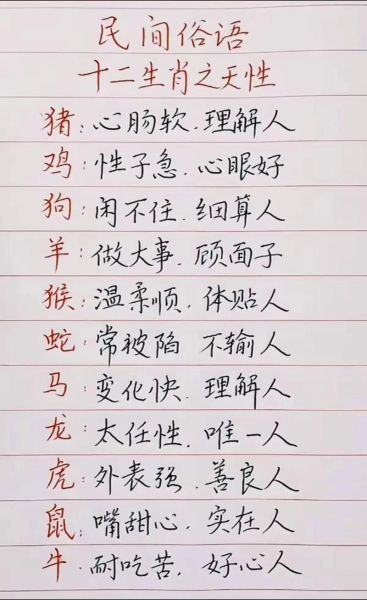 民间俗语
十二生肖之天性
猪:心肠软.理解人
鸡:性子急.心眼好
狗:闲不住.细算人
羊:做大事.顾面子
猴:温柔顺.体贴人
蛇:常被陷 不输人
马:变化快.理解人
龙:太任性.唯一人
虎:外表强.善良人
鼠:嘴甜心.实在人
牛:耐吃苦.好心人